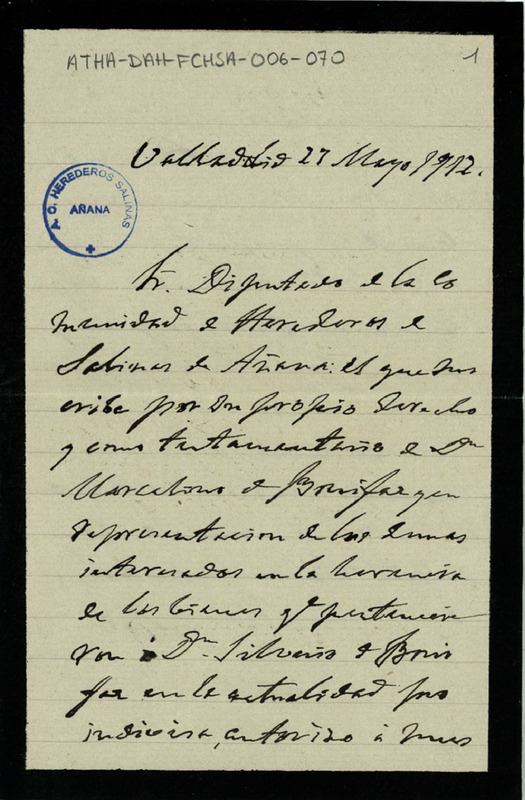 ATHA-DAH-FCHSA-006-070
1
Valladolid 27 Mayo 1912.
A. C. HEREDEROS SALINAS
AÑANA
Sr. Diputado de la co
munidad de Herederos de
Salinas de Añana: el que sus
cribe por su propio derecho
y como testamentario de Dn
Marcelino de Bonifaz y en
representacion de los demas
interesados en la herencia
de los bienes qe pertenecie
ron á Dn. Silverio de Boni
faz en la actualidad pro
indivisa, autorizo á